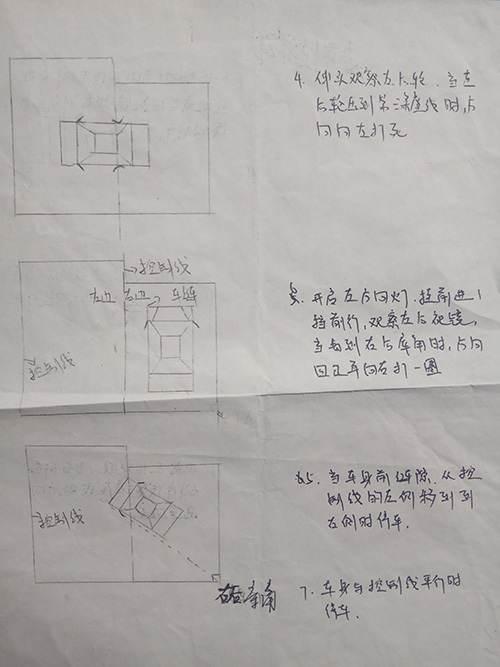 4. 伸头观察左后轮. 当左
后轮压到第三条库线时, 方
向向左打死
→控制线
左边 右边 车库
控制线
5. 开启左方向灯. 挂前进1
挡前行, 观察左后视镜,
当看到右后库角时, 方向
回正再向右打一圈
控制线
6. 当车身前缝隙, 从控
制线的左侧移到到
右侧时停车.
7. 车身与控制线平行时
停车.